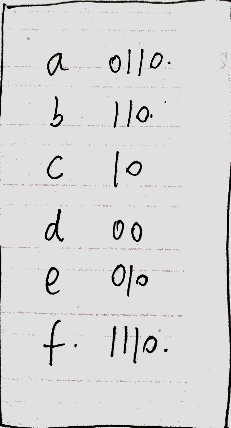 a 0110.
b 110.
c 10
d 00
e 010
f. 1110.